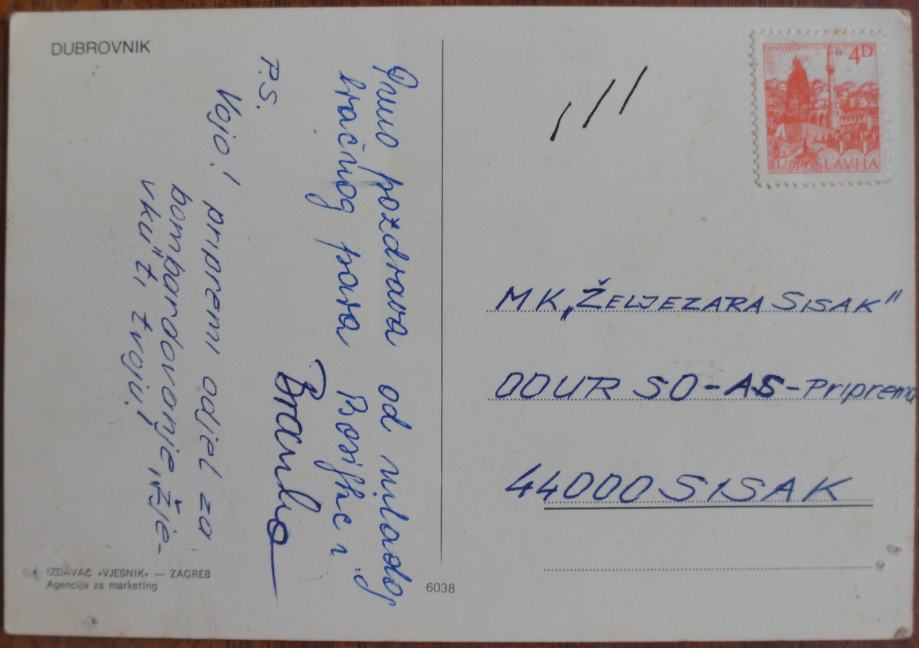 DUBROVNIK
Puno pozdrava od mladog
bračnog para Bosiljke i
Branko
P.S.
Vojo! pripremi odjel za
bombardovanje „žje-
vku" ti tvoju!
IZDAVAČ «VJESNIK» — ZAGREB
Agencija za marketing
6038
4D
JUGOSLAVIJA
MK „ŽELJEZARA SISAK"
OOUR SO-AS-Priprema
44000 SISAK